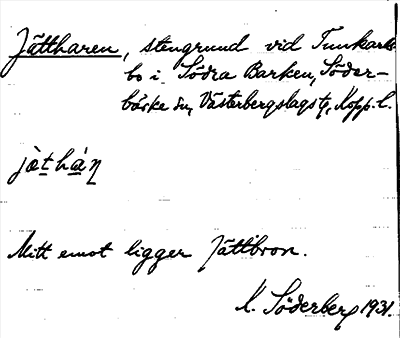 Jättharen, stengrund vid Tunkarls-
bo i Södra Barken, Söder-
bärke sn, Västerbergslags tg, Kopp. l.
jò̀t hàn
Mitt emot ligger Jättbron.
K. Söderberg 1931.